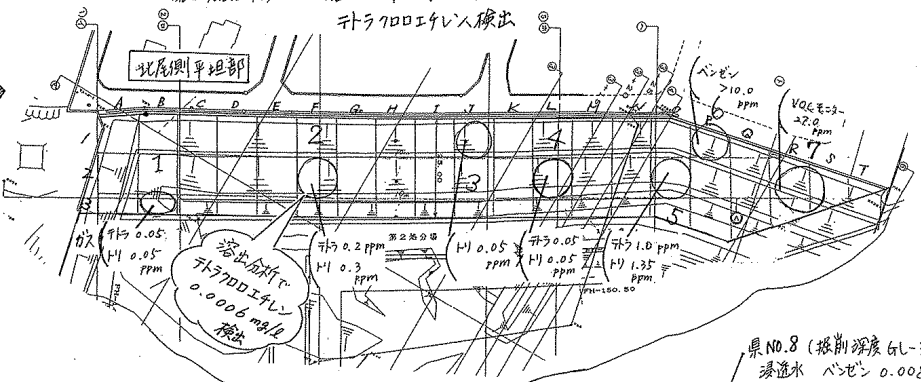 テトラクロロエチレン検出
北尾側平坦部
A B C D E F G H I J K L M N
P Q R S T
ベンゼン
>10.0
ppm
VOCモニター
27.0
ppm
1
2
3
1
2
3
4
5
6
7
ガス
テトラ 0.05
トリ 0.05
ppm
溶出分析で
テトラクロロエチレン
0.0006 mg/l
検出
テトラ 0.2 ppm
トリ 0.3
ppm
第2処分場
トリ 0.05
ppm
テトラ 0.05
トリ 0.05
ppm
テトラ 1.0 ppm
トリ 1.35
ppm
FH=150.50
県NO.8 (掘削深度 GL-
浸透水 ベンゼン 0.00